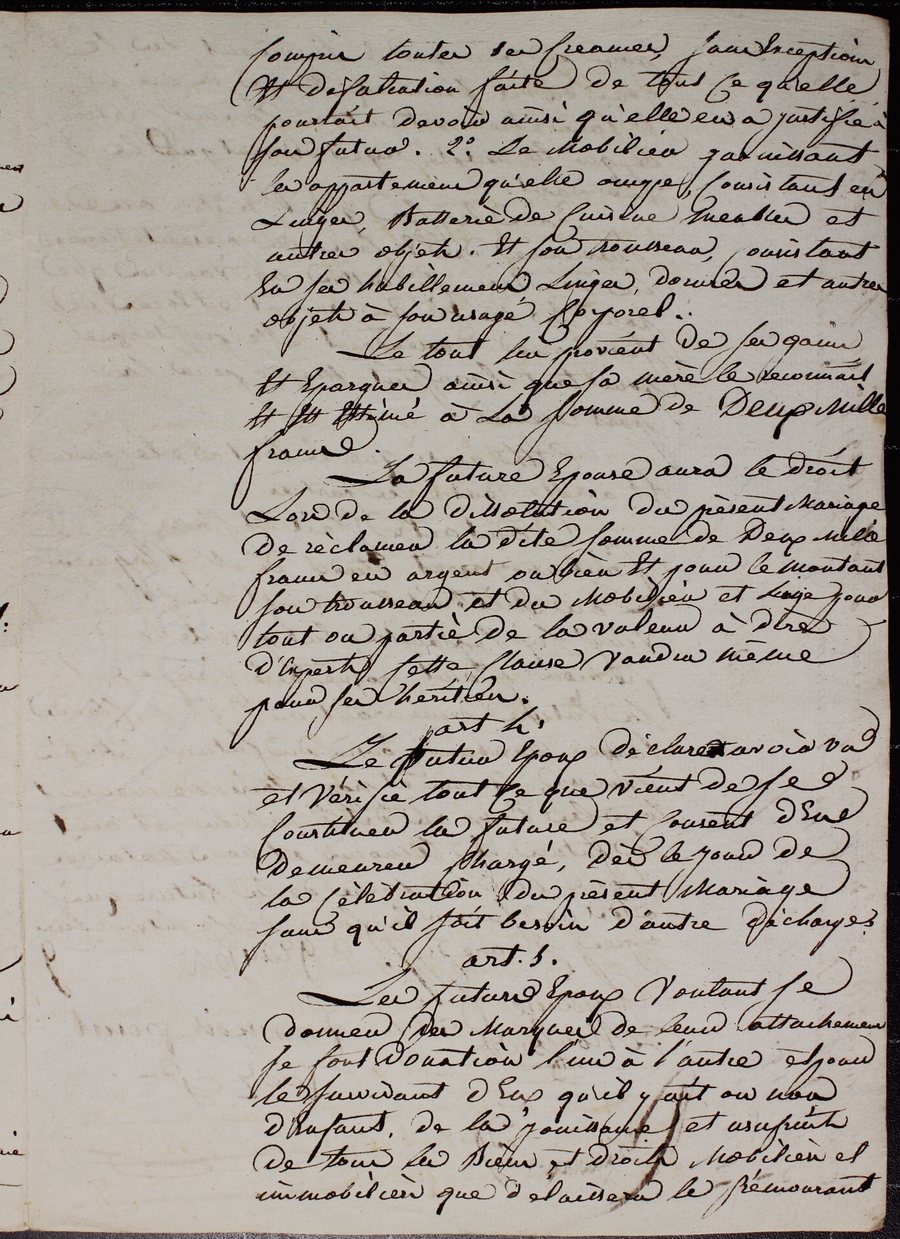 Compris toutes ses Creances, sans Exception
Et défalcation faite de tout Ce qu'elle
pourrait devoir ainsi qu'elle en a justifié à
son futur. 2.° Le Mobilier garnissant
les appartemens qu'elle occupe, Consistant en
Linges, Batterie de Cuisine Meubles et
autres objets. Et son trousseau, consistant
En ses habillemens Linges, dorures et autres
objets à son usage Corporel..
Le tout lui provient de ses gains
Et Epargnes ainsi que sa mère le reconnait
Et Est Estimé à La somme de Deux Mille
francs.
La future Epouse aura le droit
Lors de la dissolution du présent Mariage
De réclamer la dite somme de Deux Mille
francs en argent ou bien Et pour le montant
son trousseau et du Mobilier et Linge pour
tout ou partie de la valeur à dire
d'Experts Cette Clause Vaudra même
pour ses héritiers.
art 4.
Le futur Epoux déclare avoir vu
et Vérifié tout Ce que vient de se
Constituer la future et Consent d'En
Demeurer Chargé, Dès le jour de
la Célébration du présent Mariage
sans qu'il soit besoin d'autre décharge.
art. 5.
Les futurs Epoux Voulant se
donner des Marques de leur attachement
se font Donation l'un à l'autre et pour
le survivant d'Eux qu'il y ait ou non
d'Enfans, de la jouissance et usufruit
de tous les Biens et droits Mobiliers et
immobiliers que délaissera le prémourant